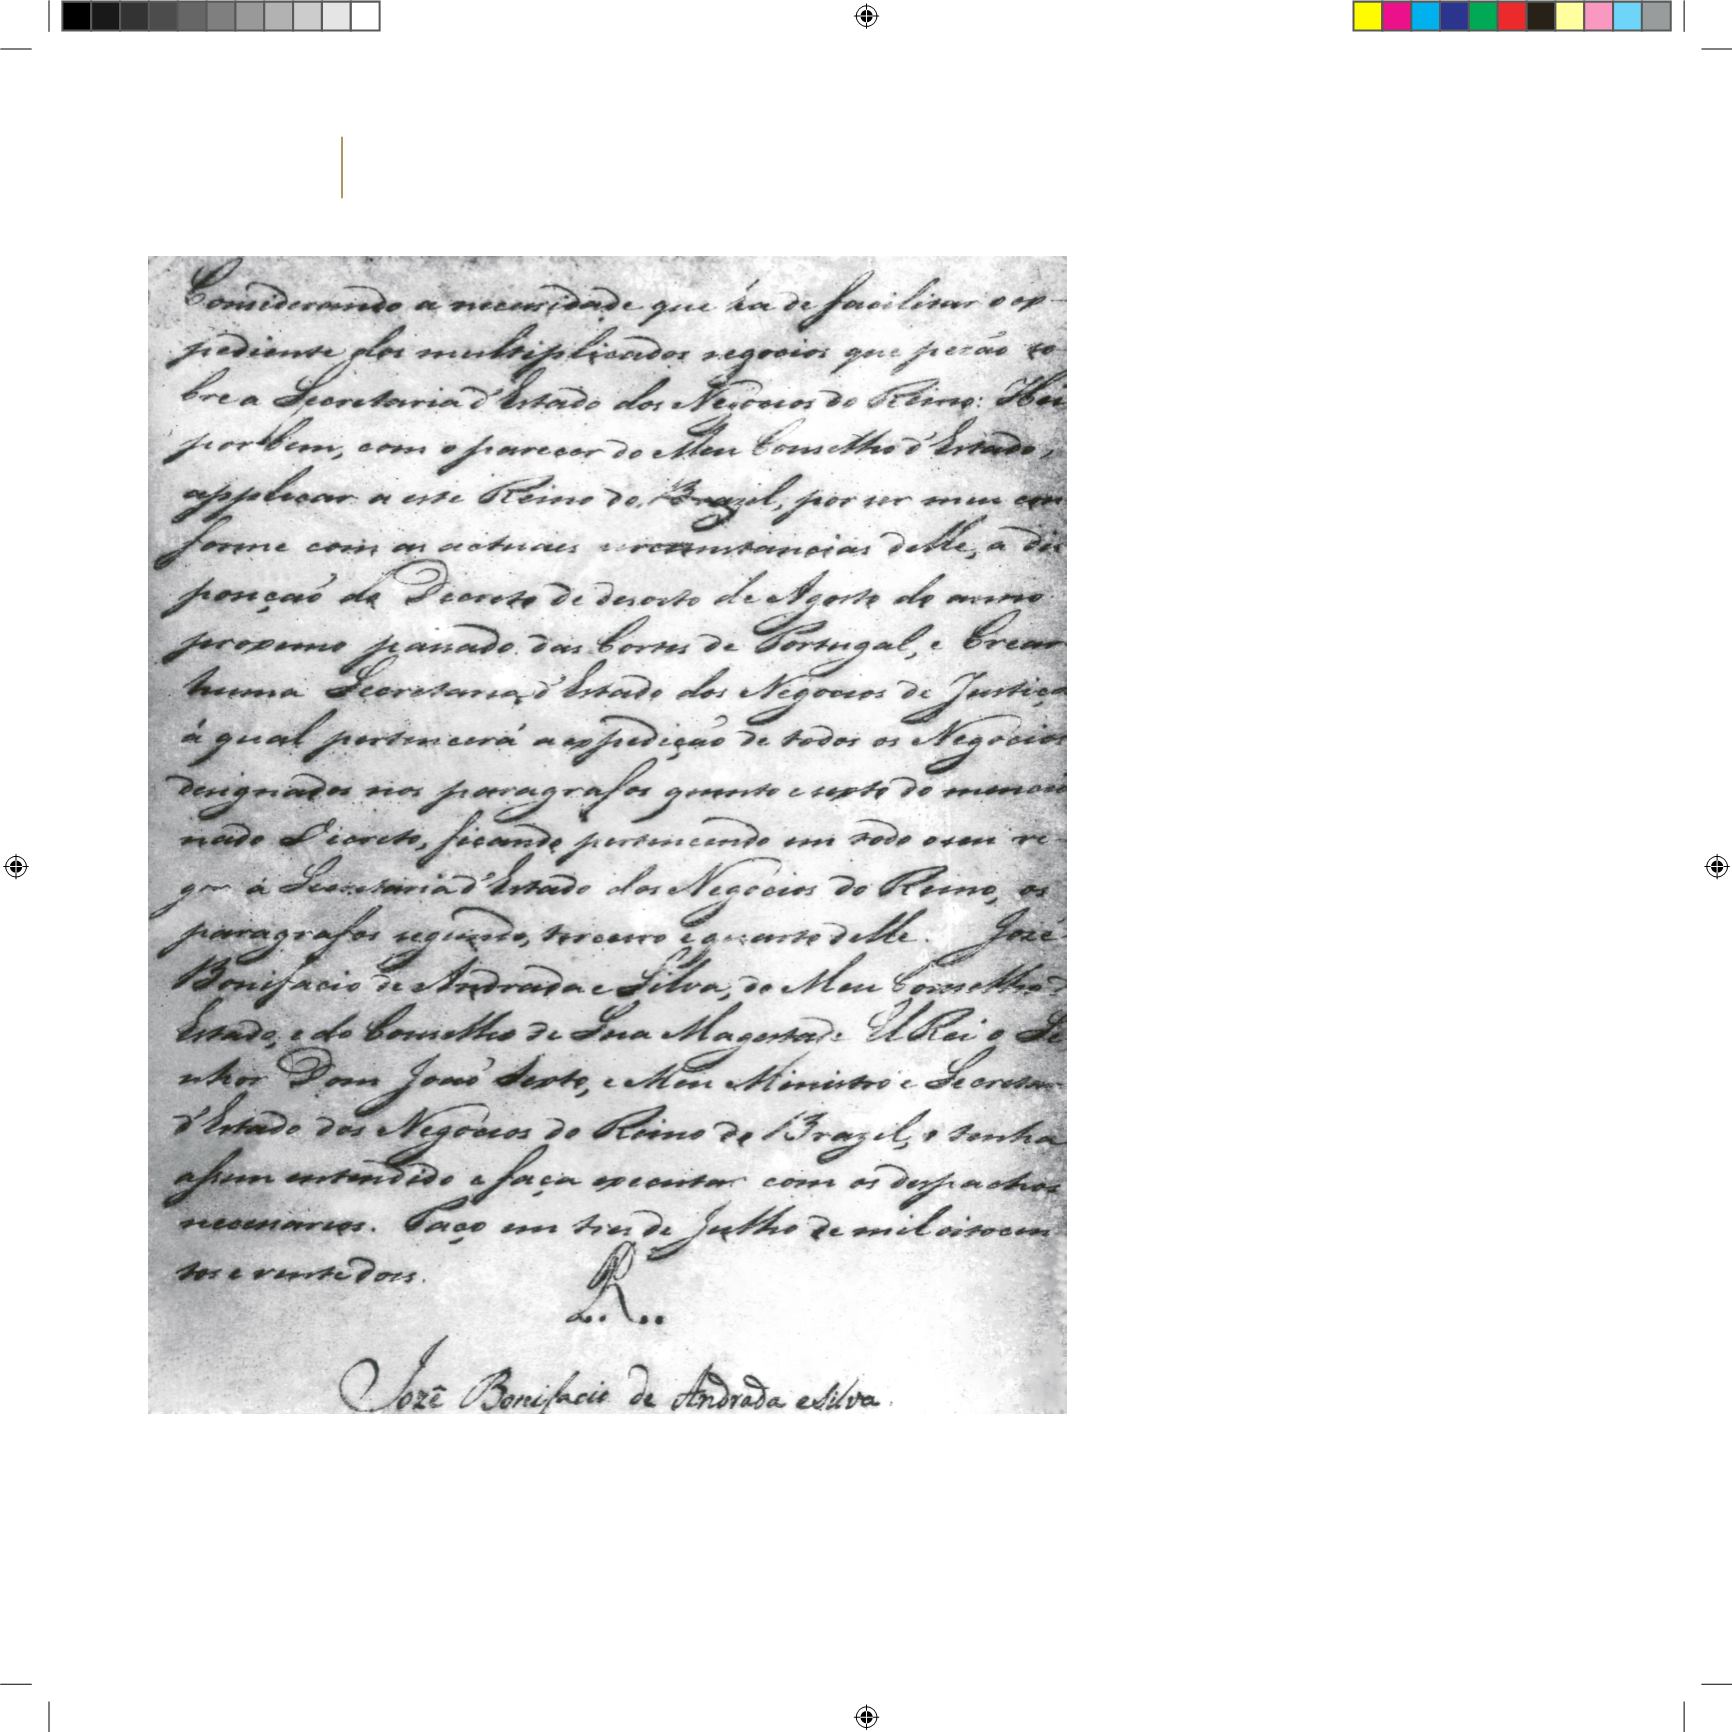 Considerando a necessidade que ha de facilitar o ex-
pediente dos multiplicados negocios que pezão so-
bre a Secretaria d'Estado dos Negocios do Reino: Hei
por bem, com o parecer do Meu Conselho d'Estado,
applicar a este Reino do Brazil, por ser meu con
forme com as actuaes circumstancias delle, a dis
posição do Decreto de desoito de Agosto do anno
proximo passado das Cortes de Portugal, e Crear
huma Secretaria d'Estado dos Negocios de Justiça
á qual pertencerá a expedição de todos os Negocios
designados nos paragrafos quinto e sexto do mencio
nado Decreto, ficando pertencendo em todo o seu re-
gor á Secretaria d'Estado dos Negocios do Reino, os
paragrafos segundo, terceiro e quarto delle. José
Bonifacio de Andrada e Silva, do Meu Conselho d'
Estado, e do Conselho de Sua Magestade El Rei o Se
nhor Dom João Sexto, e Meu Ministro e Secretar
d'Estado dos Negocios do Reino do Brazil, o tenha
assim entendido e faça executar com os despachos
necessarios. Paço em tres de Julho de mil oitocen
tos e vinte dois.
R..
Jozê Bonifacio de Andrada e Silva.